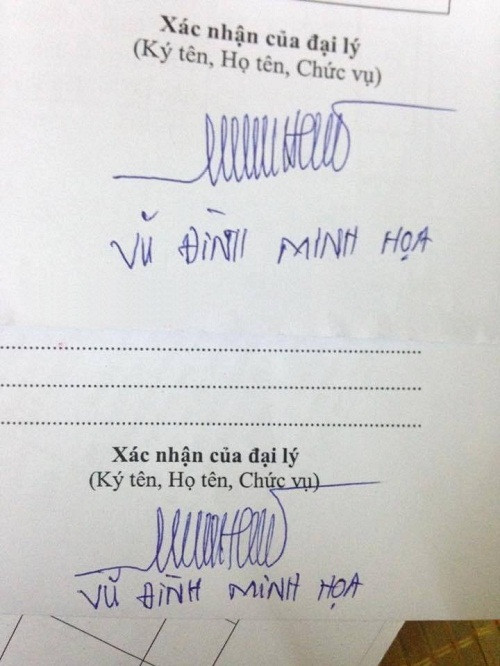 Xác nhận của đại lý
(Ký tên, Họ tên, Chức vụ)
VŨ ĐÌNH MINH HỌA
Xác nhận của đại lý
(Ký tên, Họ tên, Chức vụ)
VŨ ĐÌNH MINH HỌA